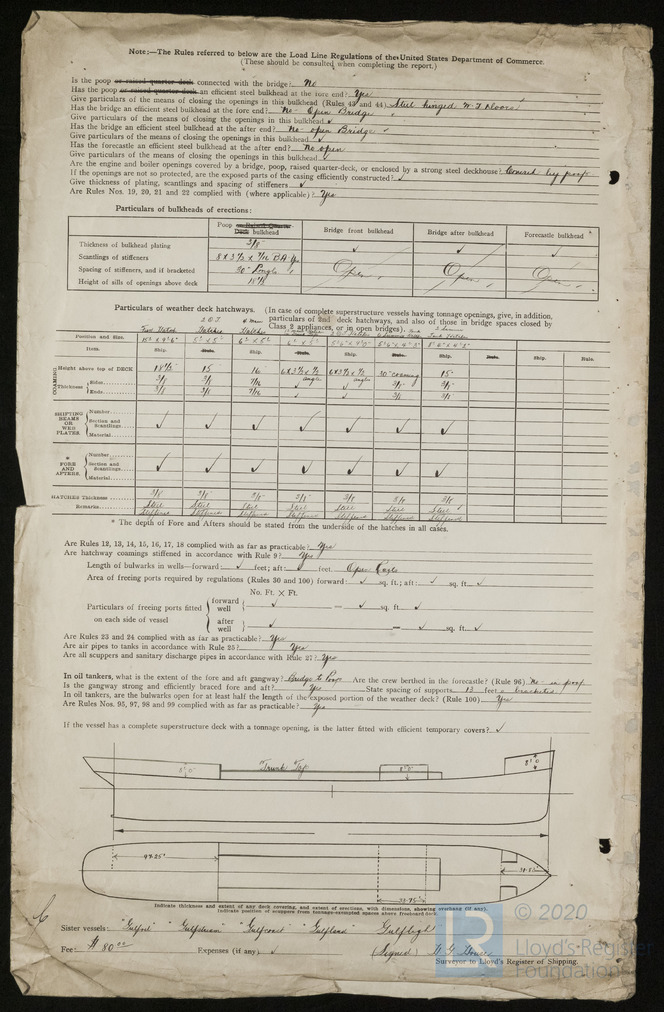 Note:—The Rules referred to below are the Load Line Regulations of the United States Department of Commerce.
(These should be consulted when completing the report.)
Is the poop or raised quarter deck connected with the bridge? No
Has the poop or raised quarter deck an efficient steel bulkhead at the fore end? Yes
Give particulars of the means of closing the openings in this bulkhead (Rules 43 and 44) Steel hinged W.T. Doors
Has the bridge an efficient steel bulkhead at the fore end? No - Open Bridge
Give particulars of the means of closing the openings in this bulkhead ✓
Has the bridge an efficient steel bulkhead at the after end? No open Bridge
Give particulars of the means of closing the openings in this bulkhead ✓
Has the forecastle an efficient steel bulkhead at the after end? No open
Give particulars of the means of closing the openings in this bulkhead ✓
Are the engine and boiler openings covered by a bridge, poop, raised quarter-deck, or enclosed by a strong steel deckhouse? Covered by poop
If the openings are not so protected, are the exposed parts of the casing efficiently constructed? ✓
Give thickness of plating, scantlings and spacing of stiffeners ✓
Are Rules Nos. 19, 20, 21 and 22 complied with (where applicable)? Yes
Particulars of bulkheads of erections:
Poop or Raised Quarter Deck bulkhead Bridge front bulkhead Bridge after bulkhead Forecastle bulkhead
Thickness of bulkhead plating 3/8" ✓ ✓ ✓
Scantlings of stiffeners
Spacing of stiffeners, and if bracketed 30" Open Open Open
Height of sills of openings above deck 18"
Particulars of weather deck hatchways. (In case of complete superstructure vessels having tonnage openings, give, in addition,
particulars of 2nd deck hatchways, and also of those in bridge spaces closed by
Class 2 appliances, or in open bridges).
Hatches Hatches
Position and Size.
Item. Ship. Rule. Ship. Rule. Ship. Rule. Ship. Rule. Ship. Rule.
COAMING Height above top of DECK 15 16 30" coaming 15"
Thickness Sides 3/8 3/8 7/16 ✓ ✓ 3/8 3/8
Ends 3/8 3/8 7/16 ✓ ✓ 3/8 3/8
SHIFTING BEAMS OR WEB PLATES Number
Section and Scantlings ✓ ✓ ✓ ✓ ✓ ✓ ✓
Material
* FORE AND AFTERS. Number
Section and Scantlings ✓ ✓ ✓ ✓ ✓ ✓ ✓
Material
HATCHES Thickness 3/8 3/8 3/8 3/8 3/8 3/8 3/8
Remarks Steel Steel Steel Steel Steel Steel Steel
* The depth of Fore and Afters should be stated from the underside of the hatches in all cases.
Are Rules 12, 13, 14, 15, 16, 17, 18 complied with as far as practicable? Yes
Are hatchway coamings stiffened in accordance with Rule 9? Yes
Length of bulwarks in wells—forward ✓ feet; aft: feet. Open Rails
Area of freeing ports required by regulations (Rules 30 and 100) forward: ✓ sq. ft.; aft: ✓ sq. ft. ✓
No. Ft. × Ft.
Particulars of freeing ports fitted on each side of vessel
forward well ✓ = ✓ sq. ft. ✓
after well ✓ = ✓ sq. ft. ✓
Are Rules 23 and 24 complied with as far as practicable? Yes
Are air pipes to tanks in accordance with Rule 25? Yes
Are all scuppers and sanitary discharge pipes in accordance with Rule 27? Yes
In oil tankers, what is the extent of the fore and aft gangway? Bridge to Poop Are the crew berthed in the forecastle? (Rule 96) No - in poop
Is the gangway strong and efficiently braced fore and aft? Yes State spacing of supports 13 feet & bracketed
In oil tankers, are the bulwarks open for at least half the length of the exposed portion of the weather deck? (Rule 100) Yes
Are Rules Nos. 95, 97, 98 and 99 complied with as far as practicable? Yes
If the vessel has a complete superstructure deck with a tonnage opening, is the latter fitted with efficient temporary covers? ✓
8' 0" Trunk Top 8' 0" 8' 0"
Indicate thickness and extent of any deck covering, and extent of erections, with dimensions, showing overhang (if any).
Indicate position of scuppers from tonnage-exempted spaces above freeboard deck.
Sister vessels: "Gulfport" "Gulfstream" "Gulfcoast" "Gulfland" Gulflight
Fee: $80.00 Expenses (if any) ✓ (Signed)
Surveyor to Lloyd's Register of Shipping.
© 2020
Lloyd's Register
Foundation
LR